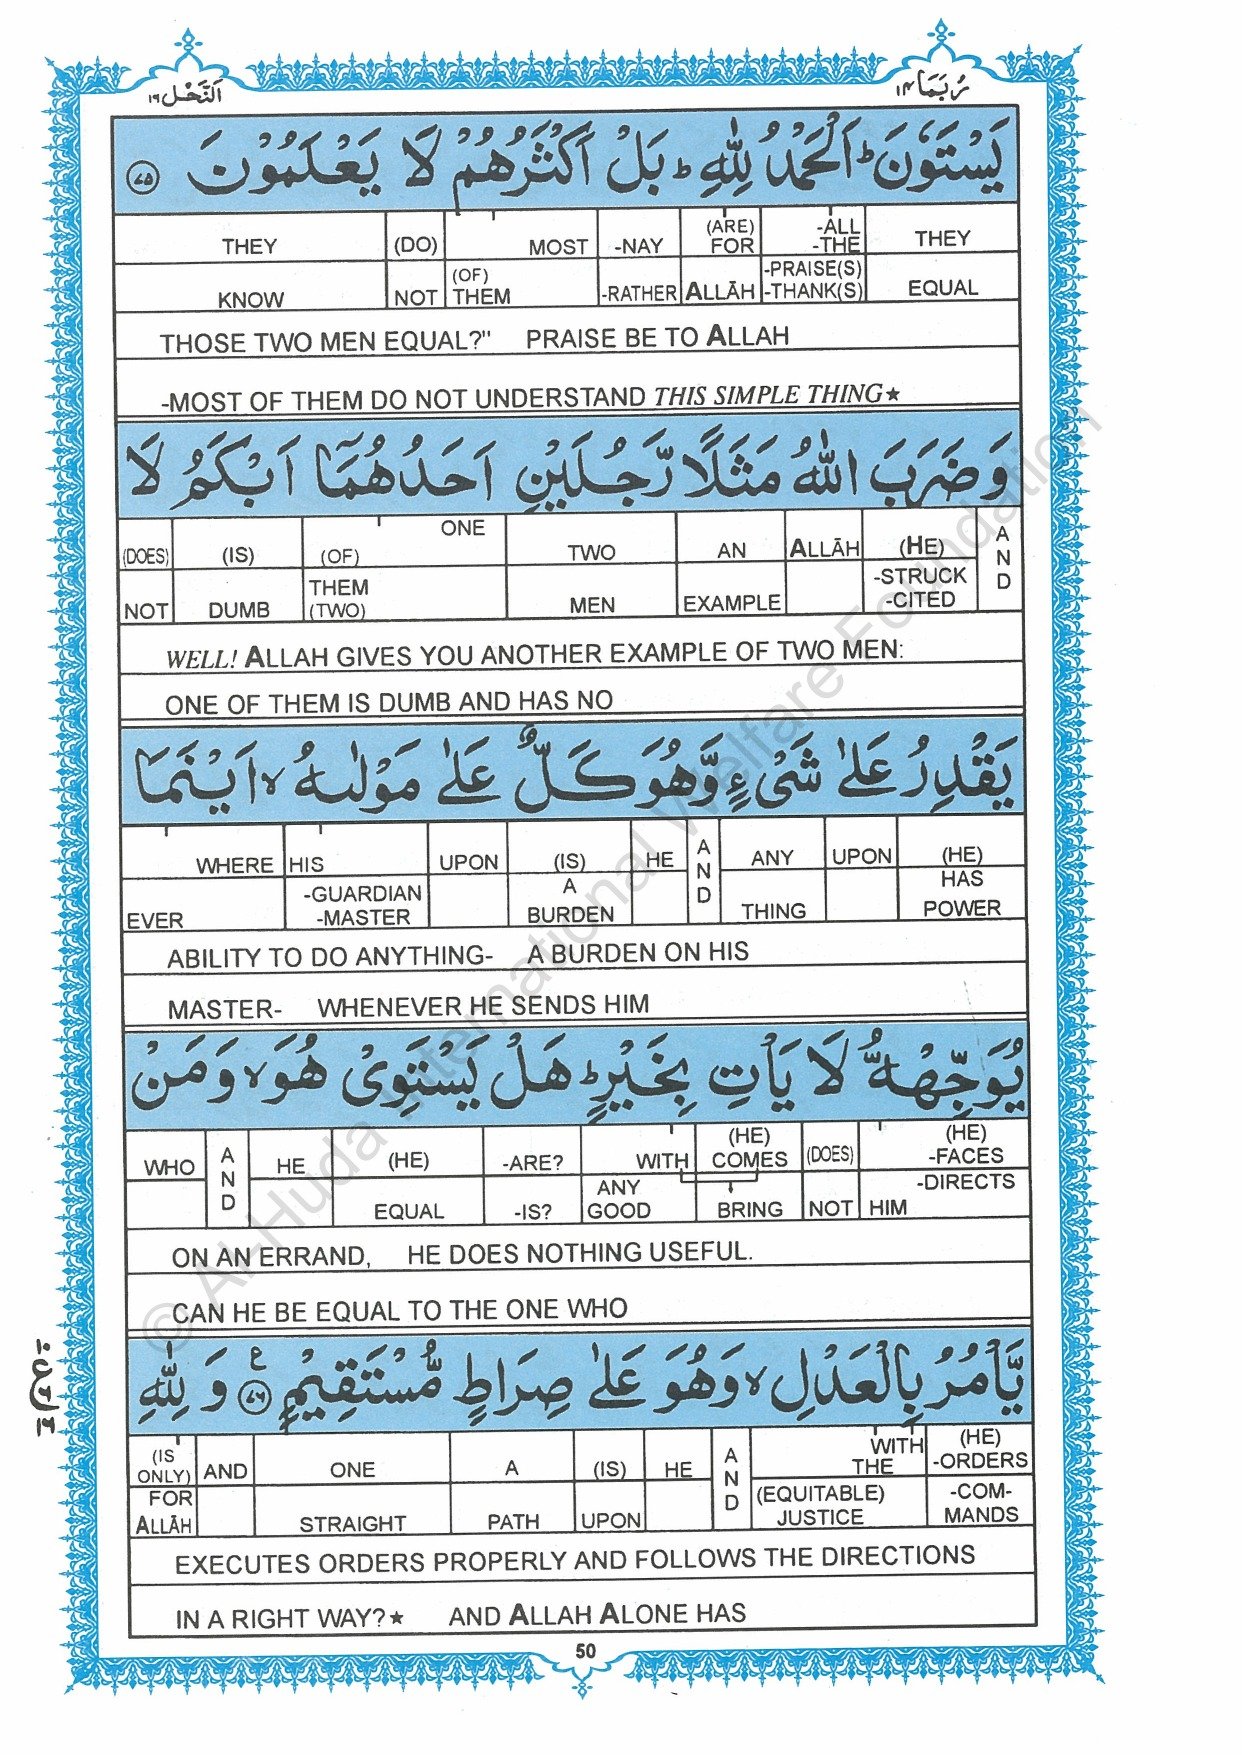 رُبَمَا ۱۴
اَلنَّحْل ۱۶
يَسْتَوٗنَ ؕ اَلْحَمْدُ لِلّٰهِ ؕ بَلْ اَكْثَرُهُمْ لَا يَعْلَمُوْنَ ۷۵
THEY (DO) MOST -NAY (ARE) FOR -ALL -THE THEY
KNOW NOT (OF) THEM -RATHER ALLĀH -PRAISE(S) -THANK(S) EQUAL
THOSE TWO MEN EQUAL?" PRAISE BE TO ALLAH
-MOST OF THEM DO NOT UNDERSTAND THIS SIMPLE THING★
وَ ضَرَبَ اللّٰهُ مَثَلًا رَّجُلَيْنِ اَحَدُهُمَآ اَبْكَمُ لَا
(DOES) (IS) (OF) ONE TWO AN ALLĀH (HE) AND
NOT DUMB THEM (TWO) MEN EXAMPLE -STRUCK -CITED
WELL! ALLAH GIVES YOU ANOTHER EXAMPLE OF TWO MEN:
ONE OF THEM IS DUMB AND HAS NO
يَقْدِرُ عَلٰى شَىْءٍ وَّهُوَ كَلٌّ عَلٰى مَوْلٰىهُ ۙ اَيْنَمَا
WHERE HIS UPON (IS) HE AND ANY UPON (HE)
EVER -GUARDIAN -MASTER A BURDEN THING HAS POWER
ABILITY TO DO ANYTHING- A BURDEN ON HIS
MASTER- WHENEVER HE SENDS HIM
يُوَجِّهْهُّ لَا يَاْتِ بِخَيْرٍ ؕ هَلْ يَسْتَوِىْ هُوَ ۙ وَ مَنْ
WHO AND HE (HE) -ARE? WITH (HE) COMES (DOES) (HE) -FACES
EQUAL -IS? ANY GOOD BRING NOT -DIRECTS HIM
ON AN ERRAND, HE DOES NOTHING USEFUL.
CAN HE BE EQUAL TO THE ONE WHO
يَّاْمُرُ بِالْعَدْلِ ۙ وَهُوَ عَلٰى صِرَاطٍ مُّسْتَقِيْمٍ ۷۶ ع وَ لِلّٰهِ
(IS ONLY) AND ONE A (IS) HE AND WITH THE (HE) -ORDERS
FOR ALLĀH STRAIGHT PATH UPON (EQUITABLE) JUSTICE -COM-MANDS
EXECUTES ORDERS PROPERLY AND FOLLOWS THE DIRECTIONS
IN A RIGHT WAY?★ AND ALLAH ALONE HAS
50
© Al-Huda International Welfare Foundation